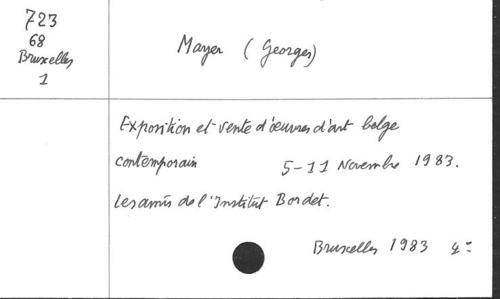 723
68
Bruxelles
1
Mayer (Georges)
Exposition et vente d'œuvres d'art belge
contemporain 5-11 Novembre 1983.
Les amis de l'Institut Bordet.
Bruxelles 1983 4°